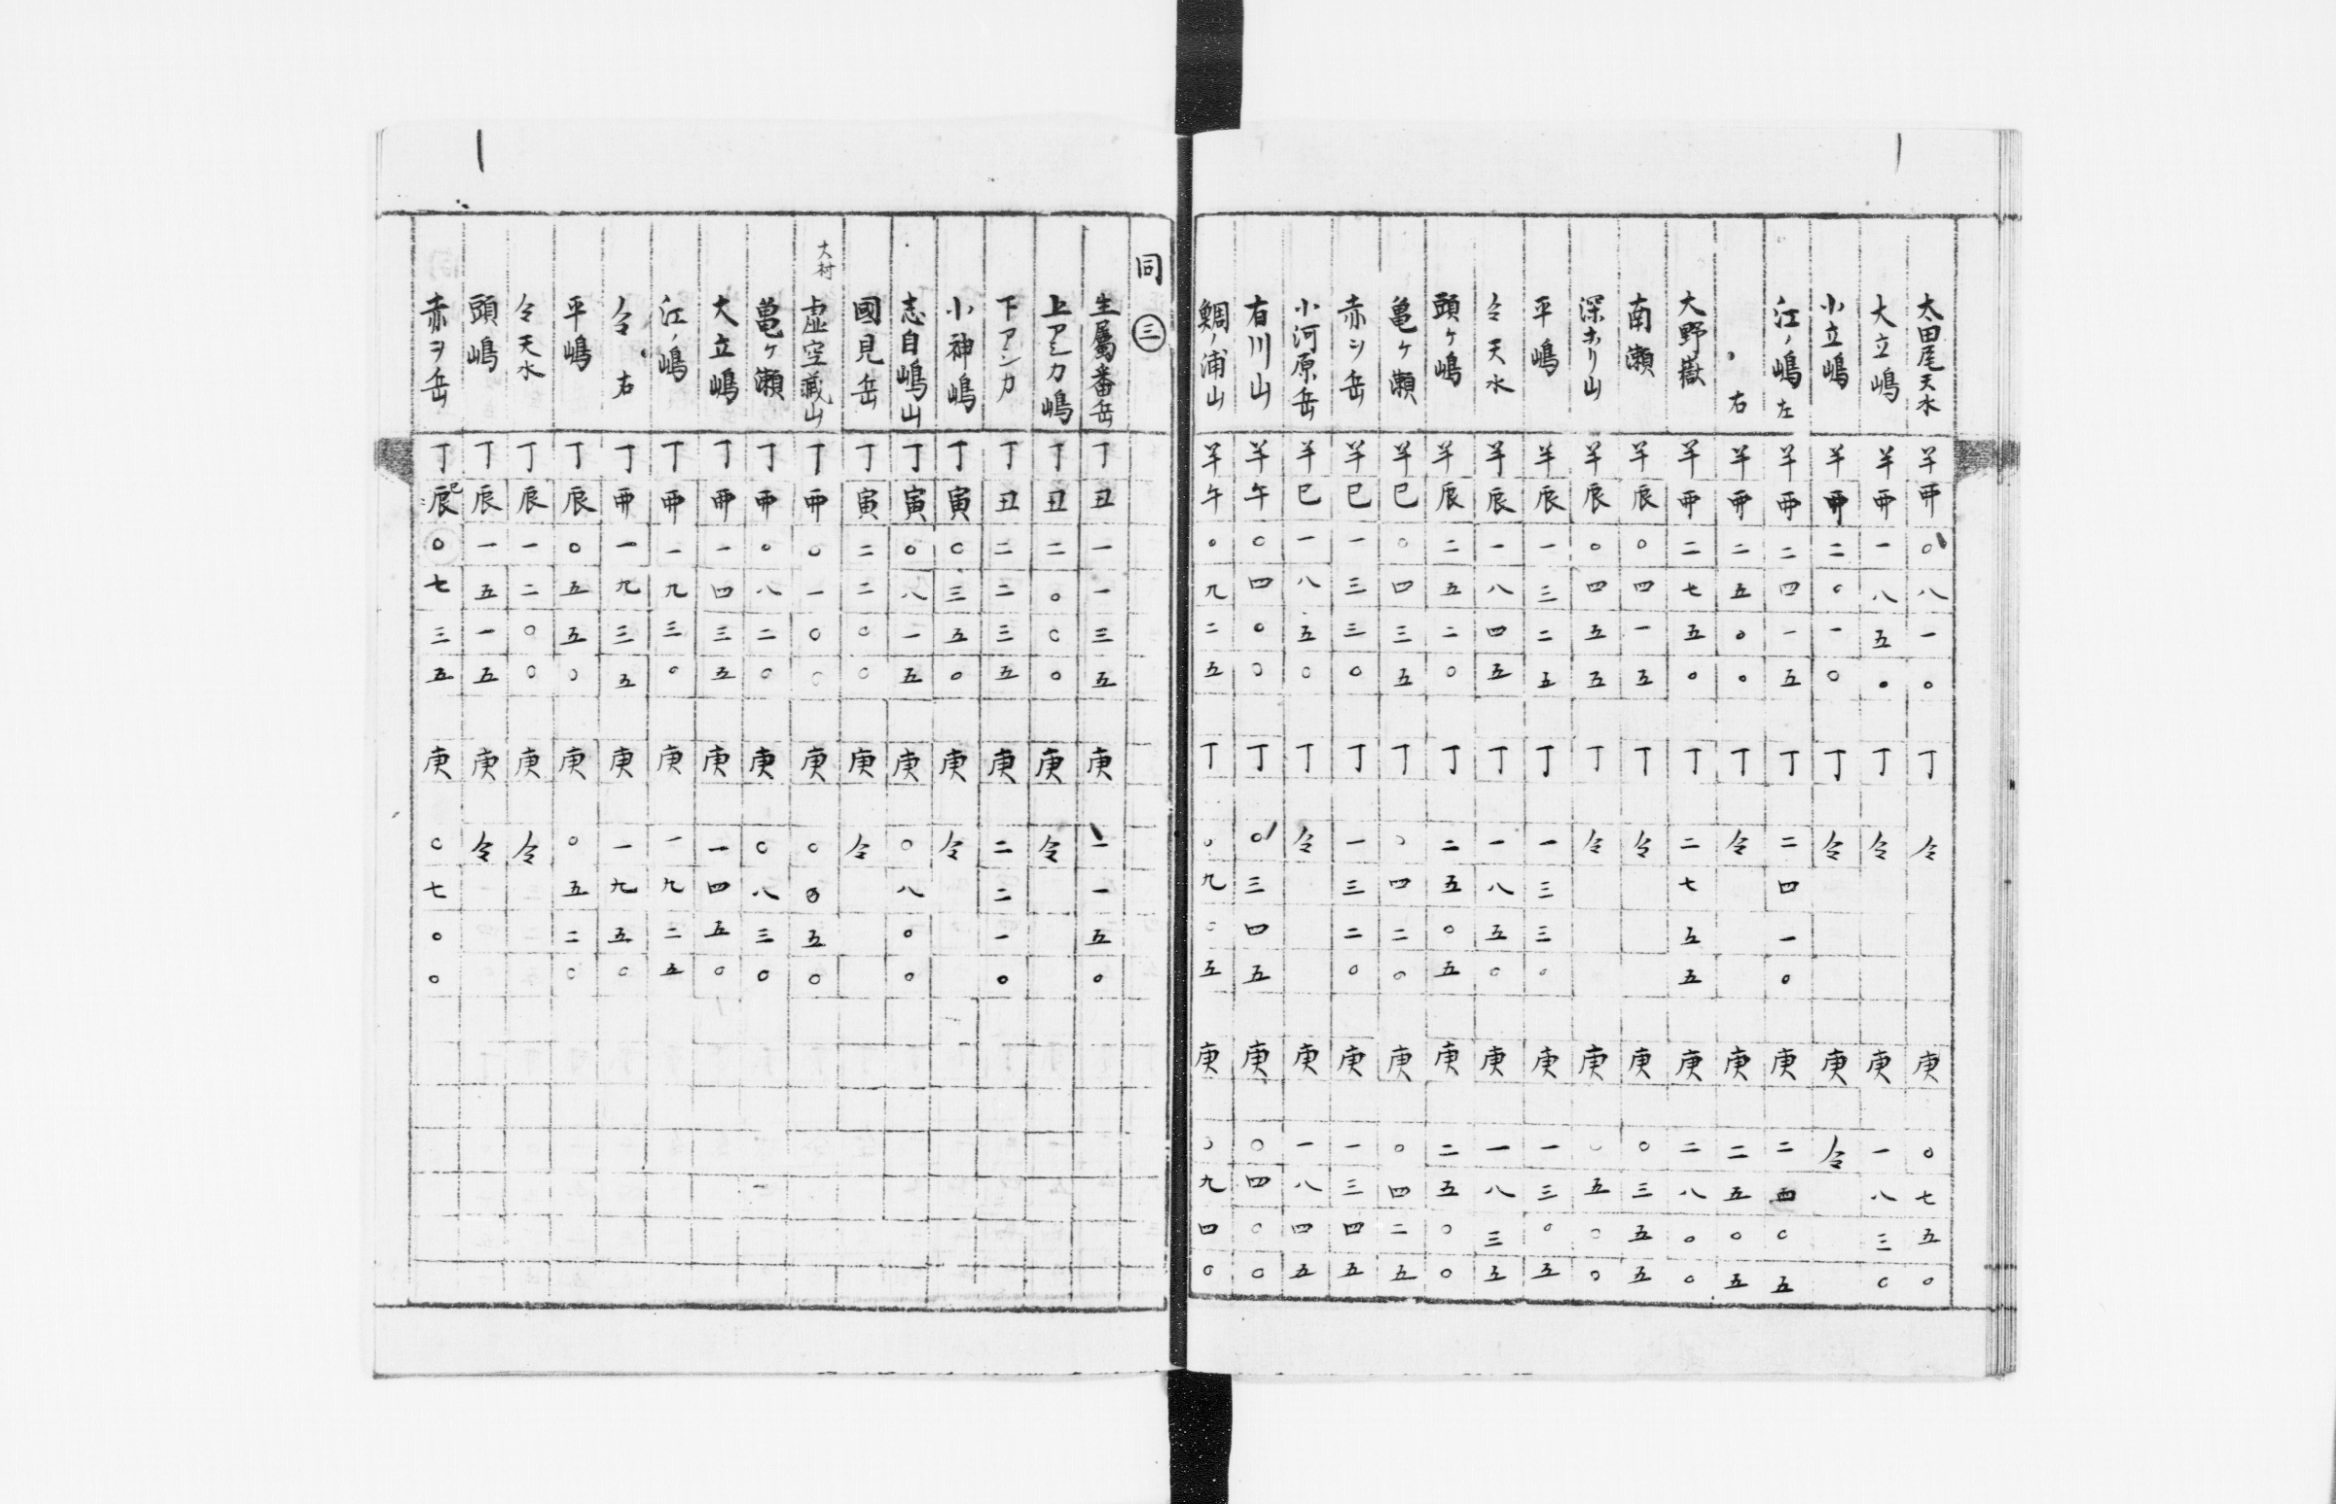 太田尾天水 羊 丣 〇八一〇 丁 仝 庚 〇七五〇
大立嶋 羊 丣 一八五〇 丁 仝 庚 一八三〇
小立嶋 羊 丣 二〇一〇 丁 仝 庚 仝
江ノ嶋左 羊 丣 二四一五 丁 二四一〇 庚 二四〇五
〃右 羊 丣 二五〇〇 丁 仝 庚 二五〇五
大野嶽 羊 丣 二七五〇 丁 二七五五 庚 二八〇〇
南瀬 羊 辰 〇四一五 丁 仝 庚 〇三五五
深ホリ山 羊 辰 〇四五五 丁 仝 庚 〇五〇〇
平嶋 羊 辰 一三二五 丁 一三三〇 庚 一三〇五
仝天水 羊 辰 一八四五 丁 一八五〇 庚 一八三五
頭ヶ嶋 羊 辰 二五二〇 丁 二五〇五 庚 二五〇〇
亀ヶ瀬 羊 巳 〇四三五 丁 〇四二〇 庚 〇四二五
赤シ岳 羊 巳 一三三〇 丁 一三二〇 庚 一三四五
小河原岳 羊 巳 一八五〇 丁 仝 庚 一八四五
有川山 羊 午 〇四〇〇 丁 〇三四五 庚 〇四〇〇
鯛ノ浦山 羊 午 〇九二五 丁 〇九〇五 庚 〇九四〇
同 ㊂
生属番岳 丁 丑 一一三五 庚 一一五〇
上アシカ嶋 丁 丑 二〇〇〇 庚 仝
下アシカ 丁 丑 二二三五 庚 二二一〇
小神嶋 丁 寅 〇三五〇 庚 仝
志自嶋山 丁 寅 〇八一五 庚 〇八〇〇
國見岳 丁 寅 二二〇〇 庚 仝
大村
虚空蔵山 丁 丣 〇一〇〇 庚 〇〇五〇
亀ヶ瀬 丁 丣 〇八二〇 庚 〇八三〇
大立嶋 丁 丣 一四三五 庚 一四五〇
江ノ嶋 丁 丣 一九三〇 庚 一九二五
仝〃右 丁 丣 一九三五 庚 一九五〇
平嶋 丁 辰 〇五五〇 庚 〇五二〇
仝天水 丁 辰 一二〇〇 庚 仝
頭嶋 丁 辰 一五一五 庚 仝
赤ヲ岳 丁 辰 〇七三五 庚 〇七〇〇